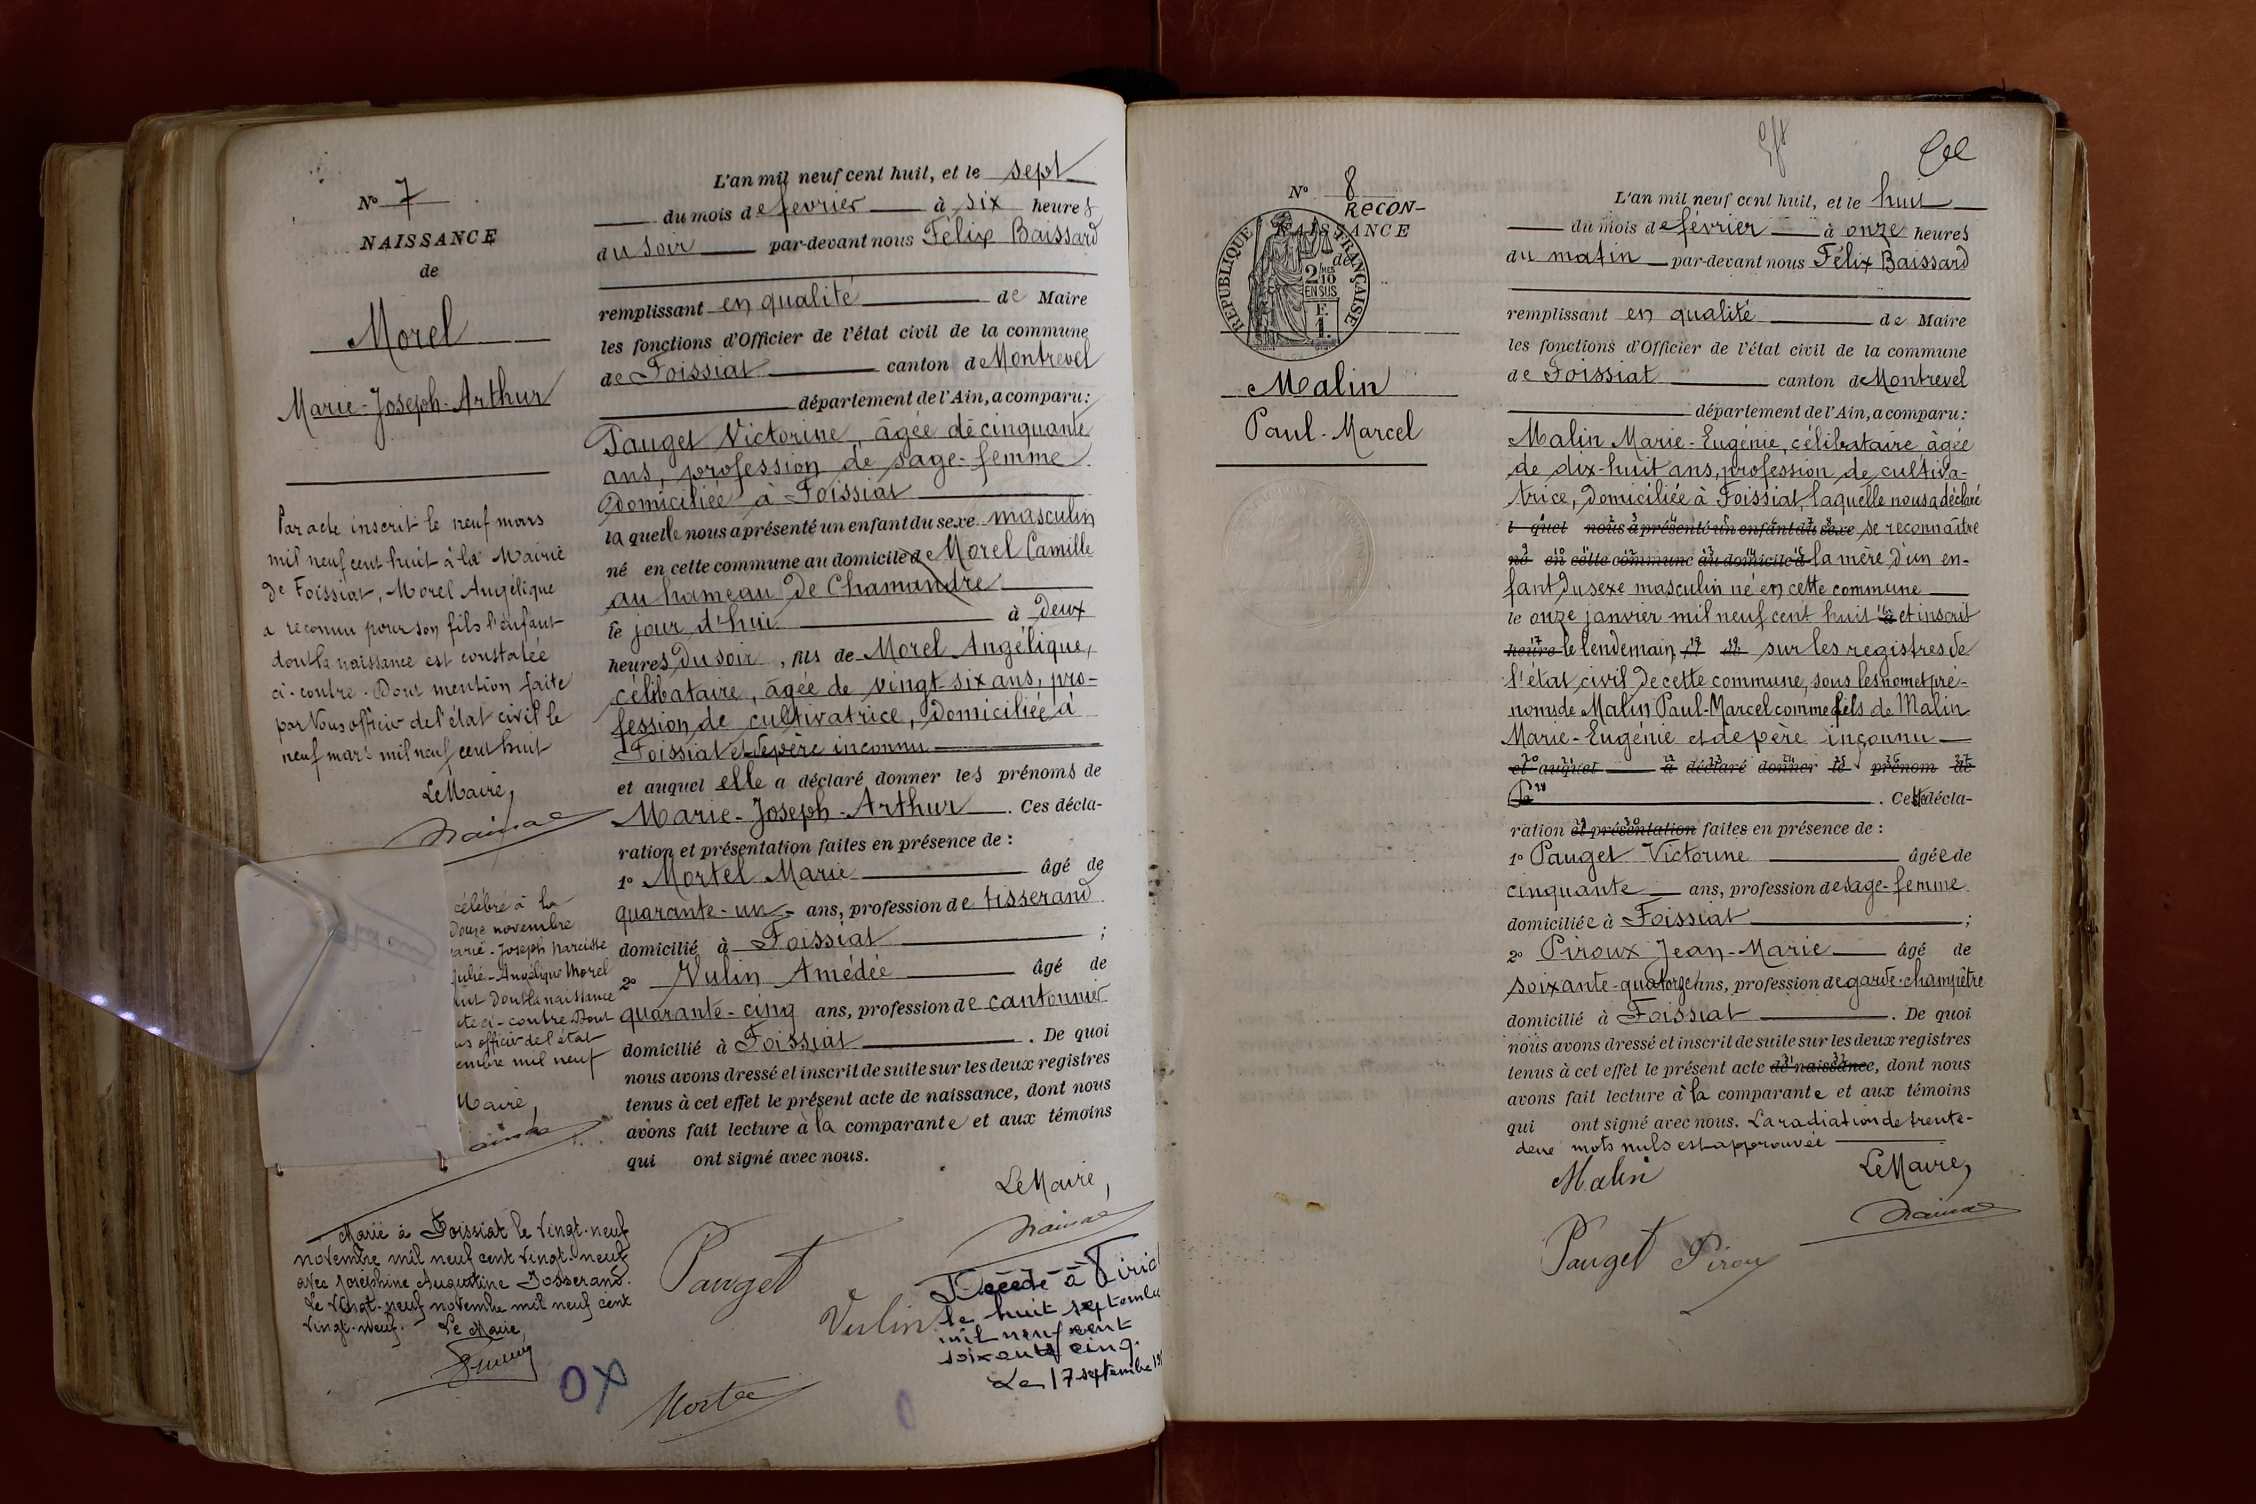 N° 7
NAISSANCE
de
Morel
Marie-Joseph-Arthur
Par acte inscrit le neuf mars
mil neuf cent huit à la Mairie
de Foissiat, Morel Angélique
a reconnu pour son fils l'enfant
dont la naissance est constatée
ci-contre. Dont mention faite
par Nous officier de l'état civil le
neuf mars mil neuf cent huit
Le Maire,
célébré à la
Douze novembre
Marie-Joseph Narcisse
Julie-Angélique Morel
dont la naissance
ci-contre Dont
officier de l'état
embre mil neuf
Maire,
Marié à Foissiat le vingt-neuf
novembre mil neuf cent vingt-neuf
avec Joséphine Augustine Josserand.
Le vingt-neuf novembre mil neuf cent
vingt-neuf. Le Maire,
L'an mil neuf cent huit, et le sept
du mois de février à six heures
du soir par-devant nous Félix Baissard
remplissant en qualité de Maire
les fonctions d'Officier de l'état civil de la commune
de Foissiat canton de Montrevel
département de l'Ain, a comparu:
Pauget Victorine, âgée de cinquante
ans, profession de sage-femme
domiciliée à Foissiat
la quelle nous a présenté un enfant du sexe masculin
né en cette commune au domicile de Morel Camille
au hameau de Chamandre
le jour d'hui à deux
heures du soir, fils de Morel Angélique,
célibataire, âgée de vingt-six ans, pro-
fession de cultivatrice, domiciliée à
Foissiat et de père inconnu
et auquel elle a déclaré donner les prénoms de
Marie-Joseph-Arthur. Ces décla-
ration et présentation faites en présence de :
1° Mortel Marie âgé de
quarante-un ans, profession de tisserand
domicilié à Foissiat ;
2° Vulin Amédée âgé de
quarante-cinq ans, profession de cantonnier
domicilié à Foissiat. De quoi
nous avons dressé et inscrit de suite sur les deux registres
tenus à cet effet le présent acte de naissance, dont nous
avons fait lecture à la comparante et aux témoins
qui ont signé avec nous.
Le Maire,
Pauget
Vulin
Décédé à
le huit septembre
mil neuf cent
soixante cinq.
Le 17 septembre
N° 8
RECON-
NAISSANCE
de
RÉPUBLIQUE FRANÇAISE
2/10 MES
EN SUS
F
1.
Malin
Paul-Marcel
L'an mil neuf cent huit, et le huit
du mois de février à onze heures
du matin par-devant nous Félix Baissard
remplissant en qualité de Maire
les fonctions d'Officier de l'état civil de la commune
de Foissiat canton de Montrevel
département de l'Ain, a comparu:
Malin Marie-Eugénie, célibataire âgée
de dix-huit ans, profession de cultiva-
trice, domiciliée à Foissiat, laquelle nous a déclaré
l quel nous a présenté un enfant du sexe se reconnaître
né en cette commune au domicile d la mère d'un en-
fant du sexe masculin né en cette commune
le onze janvier mil neuf cent huit à et inscrit
heure le lendemain, sur les registres de
l'état civil de cette commune, sous les nom et pré-
noms de Malin Paul-Marcel comme fils de Malin
Marie-Eugénie et de père inconnu
et auquel a déclaré donner le prénom de
. Cette décla-
ration et présentation faites en présence de :
1° Pauget Victorine âgée de
cinquante ans, profession de sage-femme
domiciliée à Foissiat ;
2° Piroux Jean-Marie âgé de
soixante-quatorze ans, profession de garde-champêtre
domicilié à Foissiat. De quoi
nous avons dressé et inscrit de suite sur les deux registres
tenus à cet effet le présent acte de naissance, dont nous
avons fait lecture à la comparante et aux témoins
qui ont signé avec nous. La radiation de trente-
deux mots nuls est approuvée
Malin
Le Maire,
Pauget Pirou